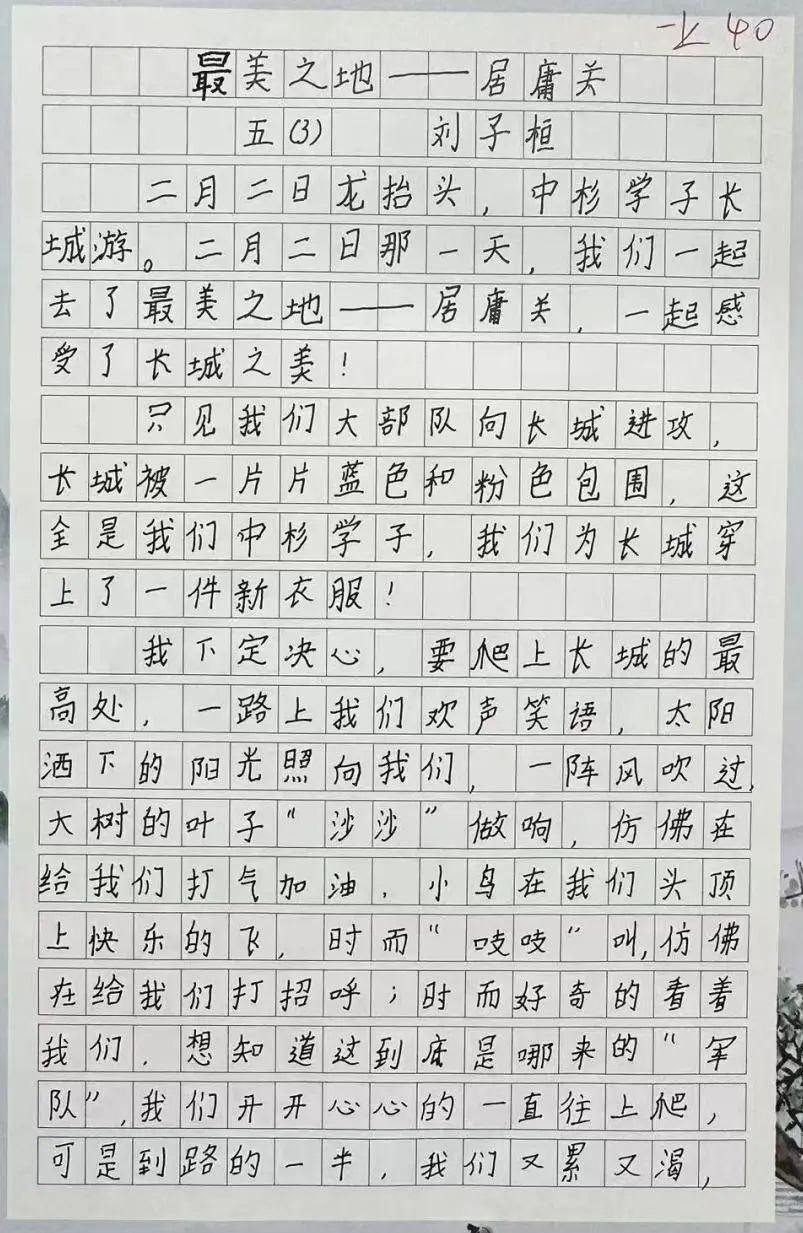 40
最美之地——居庸关
五(3) 刘子桓
二月二日龙抬头,中杉学子长
城游。二月二日那一天,我们一起
去了最美之地——居庸关,一起感
受了长城之美!
只见我们大部队向长城进攻,
长城被一片片蓝色和粉色包围,这
全是我们中杉学子,我们为长城穿
上了一件新衣服!
我下定决心,要爬上长城的最
高处,一路上我们欢声笑语,太阳
洒下的阳光照向我们,一阵风吹过,
大树的叶子“沙沙”做响,仿佛在
给我们打气加油.小鸟在我们头顶
上快乐的飞,时而“吱吱”叫,仿佛
在给我们打招呼;时而好奇的看着
我们.想知道这到底是哪来的“军
队”,我们开开心心的一直往上爬,
可是到路的一半,我们又累又渴,